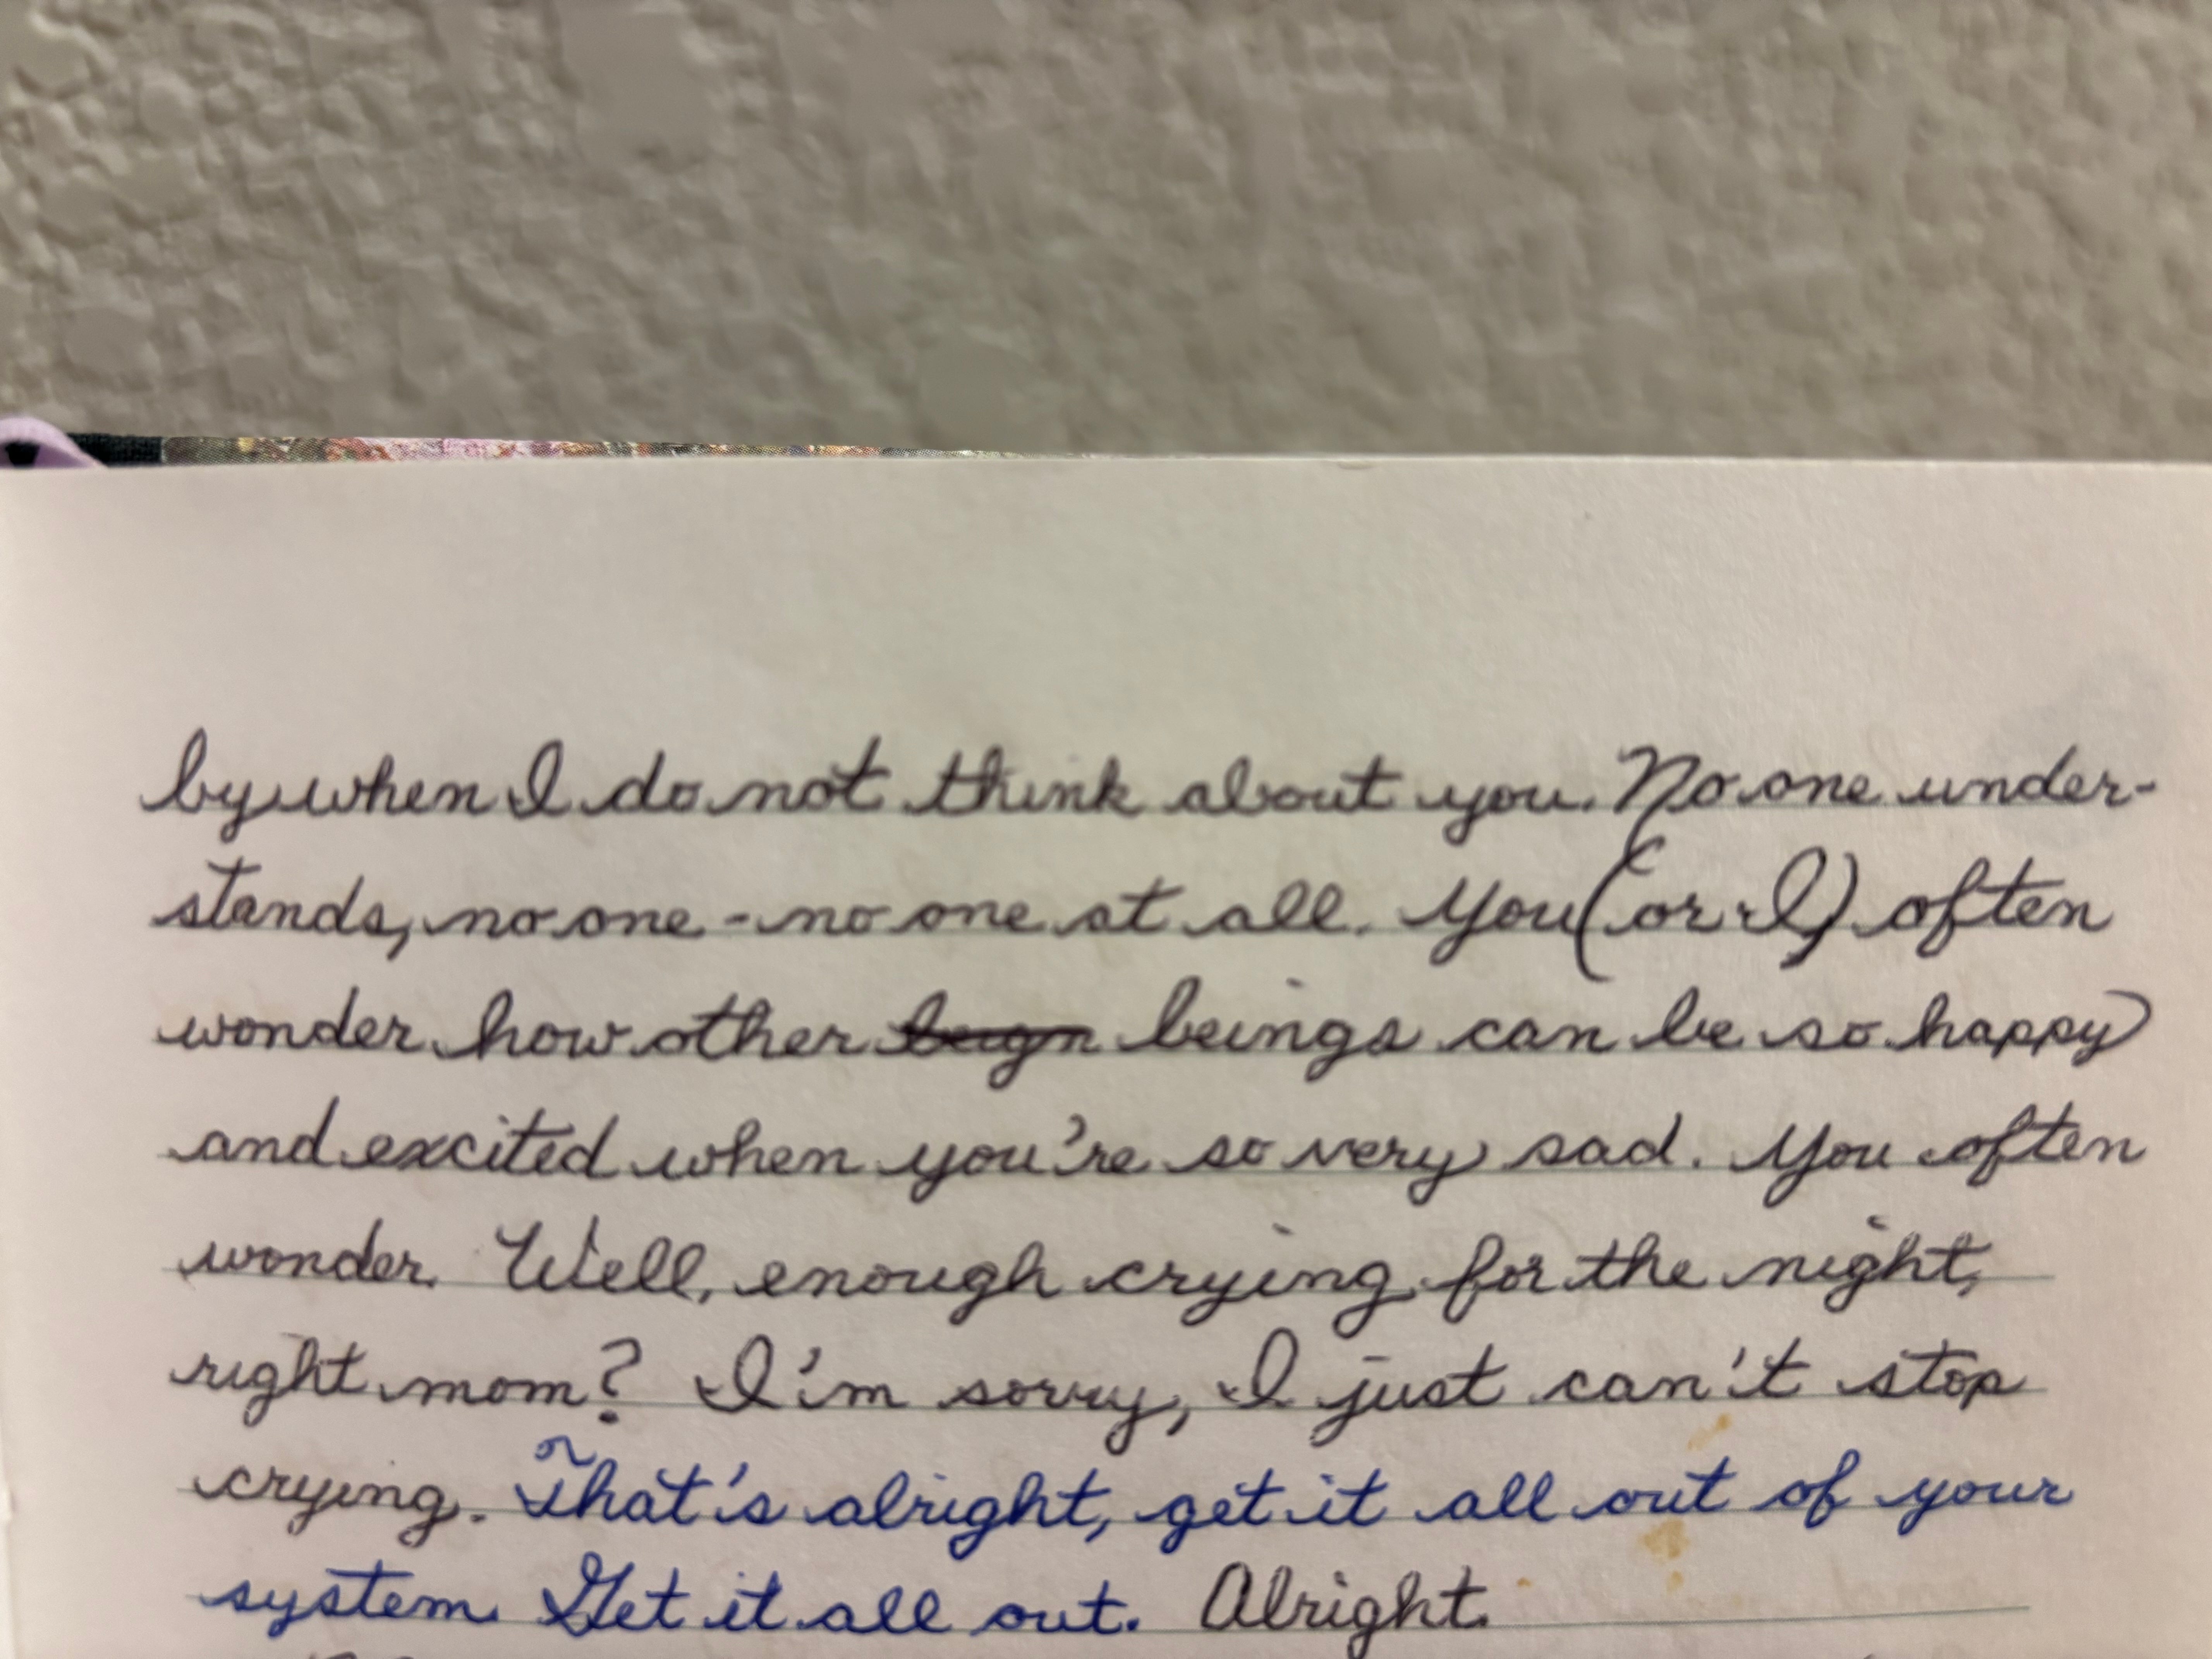 by when I do not think about you. No one under-
stands, no one - no one at all. You (or I) often
wonder how other beings can be so happy
and excited when you're so very sad. You often
wonder. Well, enough crying for the night,
right mom? I'm sorry, I just can't stop
crying. That's alright, get it all out of your
system. Get it all out. Alright.